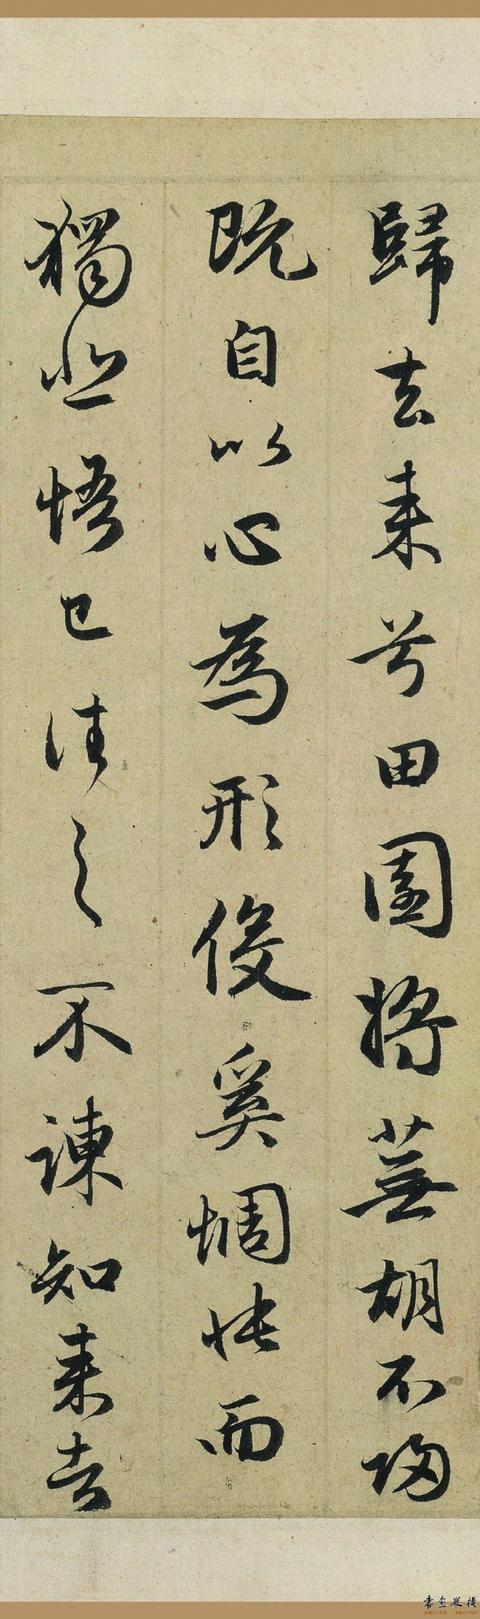 歸去来兮田園將蕪胡不歸
既自以心為形役奚惆悵而
獨悲悟已往之不諫知来者